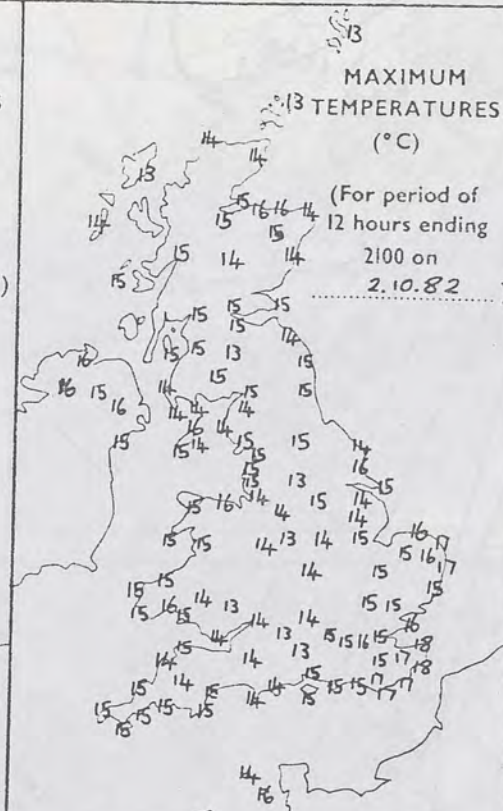 13
MAXIMUM
13 TEMPERATURES
(°C)
14 14
13
(For period of
12 hours ending
2100 on
2.10.82
15 16 16 14
14 15 15
15 14 14
15
)
15 15 15
15 14
15 15 13 15
16
14 15 15 15
16 15 16
14 14 14
16 14
15 15 14 15 15 14
15 16
15 13 15
15 16 14 14 15 14
14
15 15 14 13 14 15 16 17
15 16 17
14 15 15
15 15
15 16 15 14 13 14 14 15 15 16
14 13 15 15 16 15 18
15 14 14 13 15 17 18
15 14 15 14 14 15 15 15 15 17 17 17
15 15 15 15
15
14
16